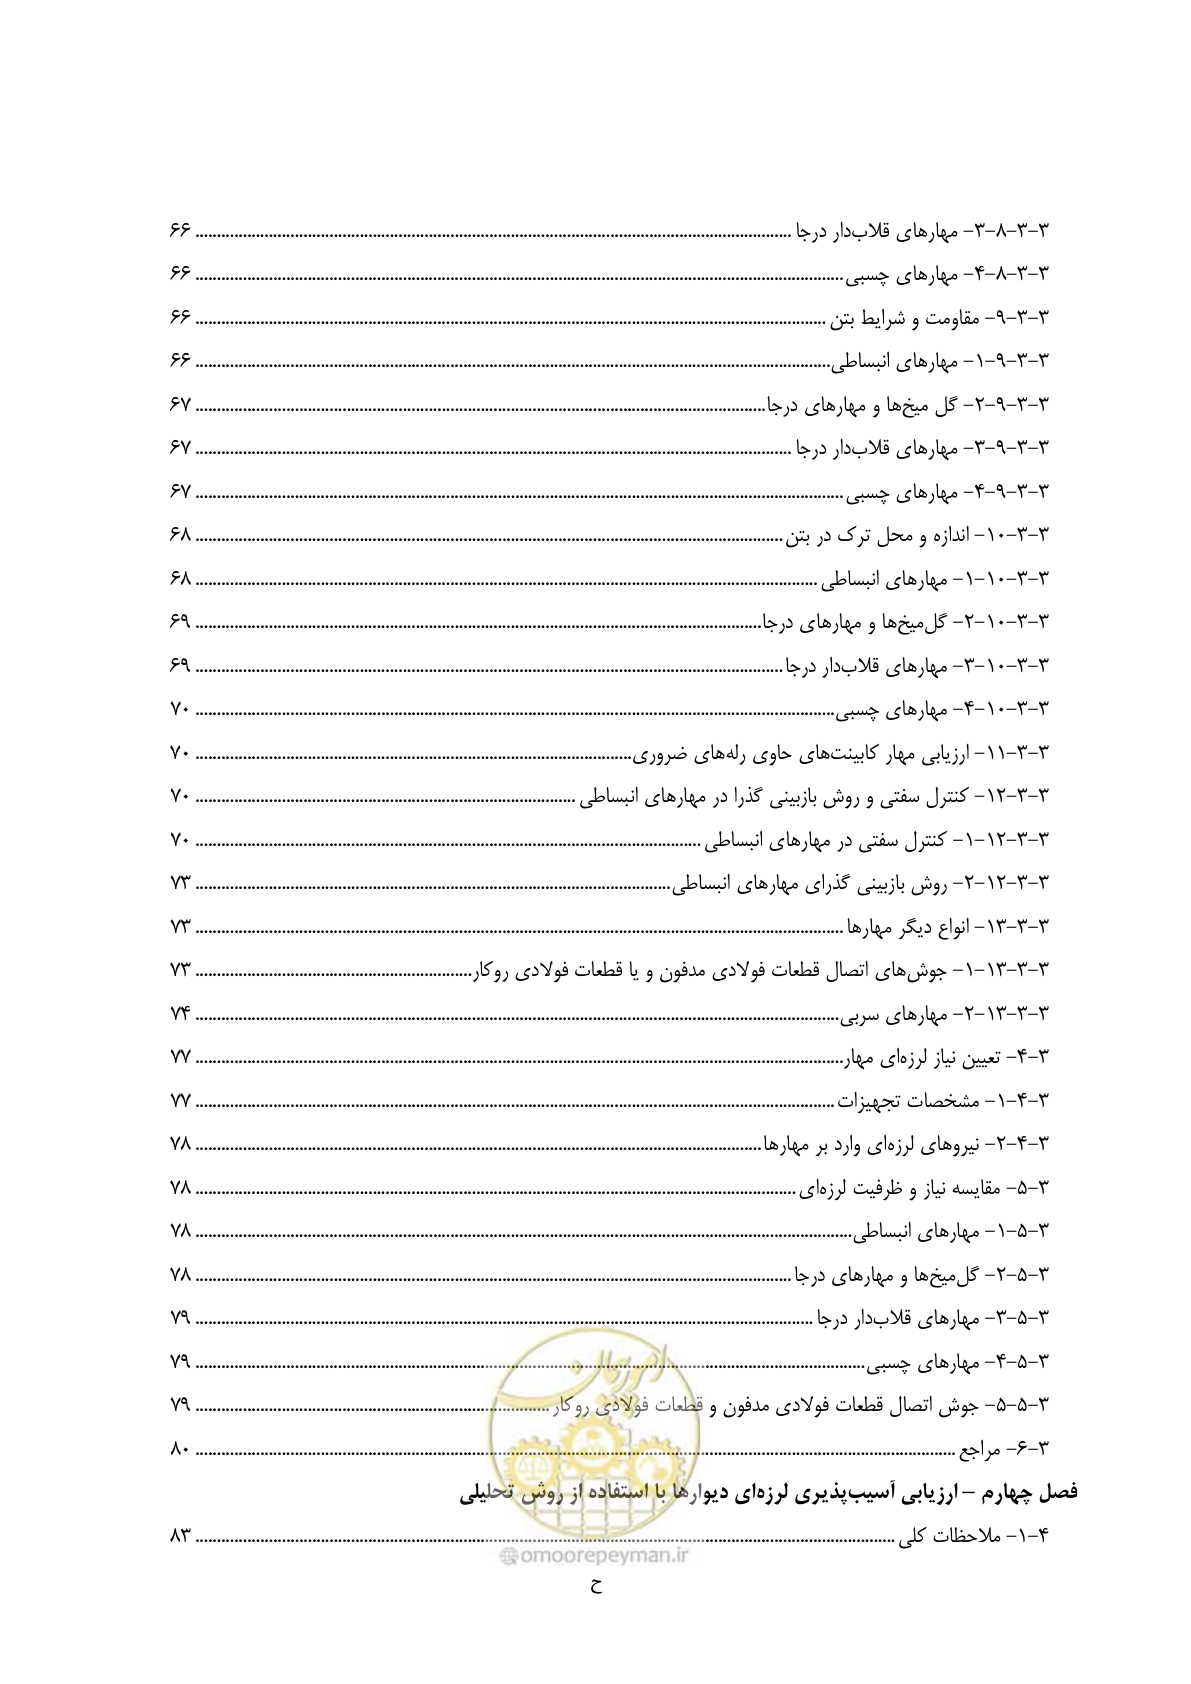 ۳-۳-۸-۳- مهارهای قلاب‌دار درجا ........ ۶۶
۳-۳-۸-۴- مهارهای چسبی ........ ۶۶
۳-۳-۹- مقاومت و شرایط بتن ........ ۶۶
۳-۳-۹-۱- مهارهای انبساطی ........ ۶۶
۳-۳-۹-۲- گل میخ‌ها و مهارهای درجا ........ ۶۷
۳-۳-۹-۳- مهارهای قلاب‌دار درجا ........ ۶۷
۳-۳-۹-۴- مهارهای چسبی ........ ۶۷
۳-۳-۱۰- اندازه و محل ترک در بتن ........ ۶۸
۳-۳-۱۰-۱- مهارهای انبساطی ........ ۶۸
۳-۳-۱۰-۲- گل‌میخ‌ها و مهارهای درجا ........ ۶۹
۳-۳-۱۰-۳- مهارهای قلاب‌دار درجا ........ ۶۹
۳-۳-۱۰-۴- مهارهای چسبی ........ ۷۰
۳-۳-۱۱- ارزیابی مهار کابینت‌های حاوی رله‌های ضروری ........ ۷۰
۳-۳-۱۲- کنترل سفتی و روش بازبینی گذرا در مهارهای انبساطی ........ ۷۰
۳-۳-۱۲-۱- کنترل سفتی در مهارهای انبساطی ........ ۷۰
۳-۳-۱۲-۲- روش بازبینی گذرای مهارهای انبساطی ........ ۷۳
۳-۳-۱۳- انواع دیگر مهارها ........ ۷۳
۳-۳-۱۳-۱- جوش‌های اتصال قطعات فولادی مدفون و یا قطعات فولادی روکار ........ ۷۳
۳-۳-۱۳-۲- مهارهای سربی ........ ۷۴
۳-۴- تعیین نیاز لرزه‌ای مهار ........ ۷۷
۳-۴-۱- مشخصات تجهیزات ........ ۷۷
۳-۴-۲- نیروهای لرزه‌ای وارد بر مهارها ........ ۷۸
۳-۵- مقایسه نیاز و ظرفیت لرزه‌ای ........ ۷۸
۳-۵-۱- مهارهای انبساطی ........ ۷۸
۳-۵-۲- گل‌میخ‌ها و مهارهای درجا ........ ۷۸
۳-۵-۳- مهارهای قلاب‌دار درجا ........ ۷۹
۳-۵-۴- مهارهای چسبی ........ ۷۹
۳-۵-۵- جوش اتصال قطعات فولادی مدفون و قطعات فولادی روکار ........ ۷۹
۳-۶- مراجع ........ ۸۰
فصل چهارم – ارزیابی آسیب‌پذیری لرزه‌ای دیوارها با استفاده از روش تحلیلی
۴-۱- ملاحظات کلی ........ ۸۳
امور پیمان
@omoorepeyman.ir
ح